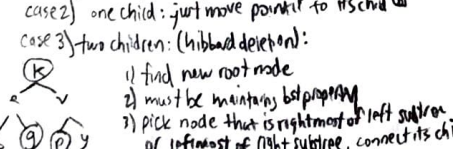 case 2) one child: just move pointer to its child
case 3) two children: (hibbard deletion):
K
1) find new root node
e v
2) must be maintains bst property
g p y
3) pick node that is rightmost of left subtree
or leftmost of right subtree, connect its chi